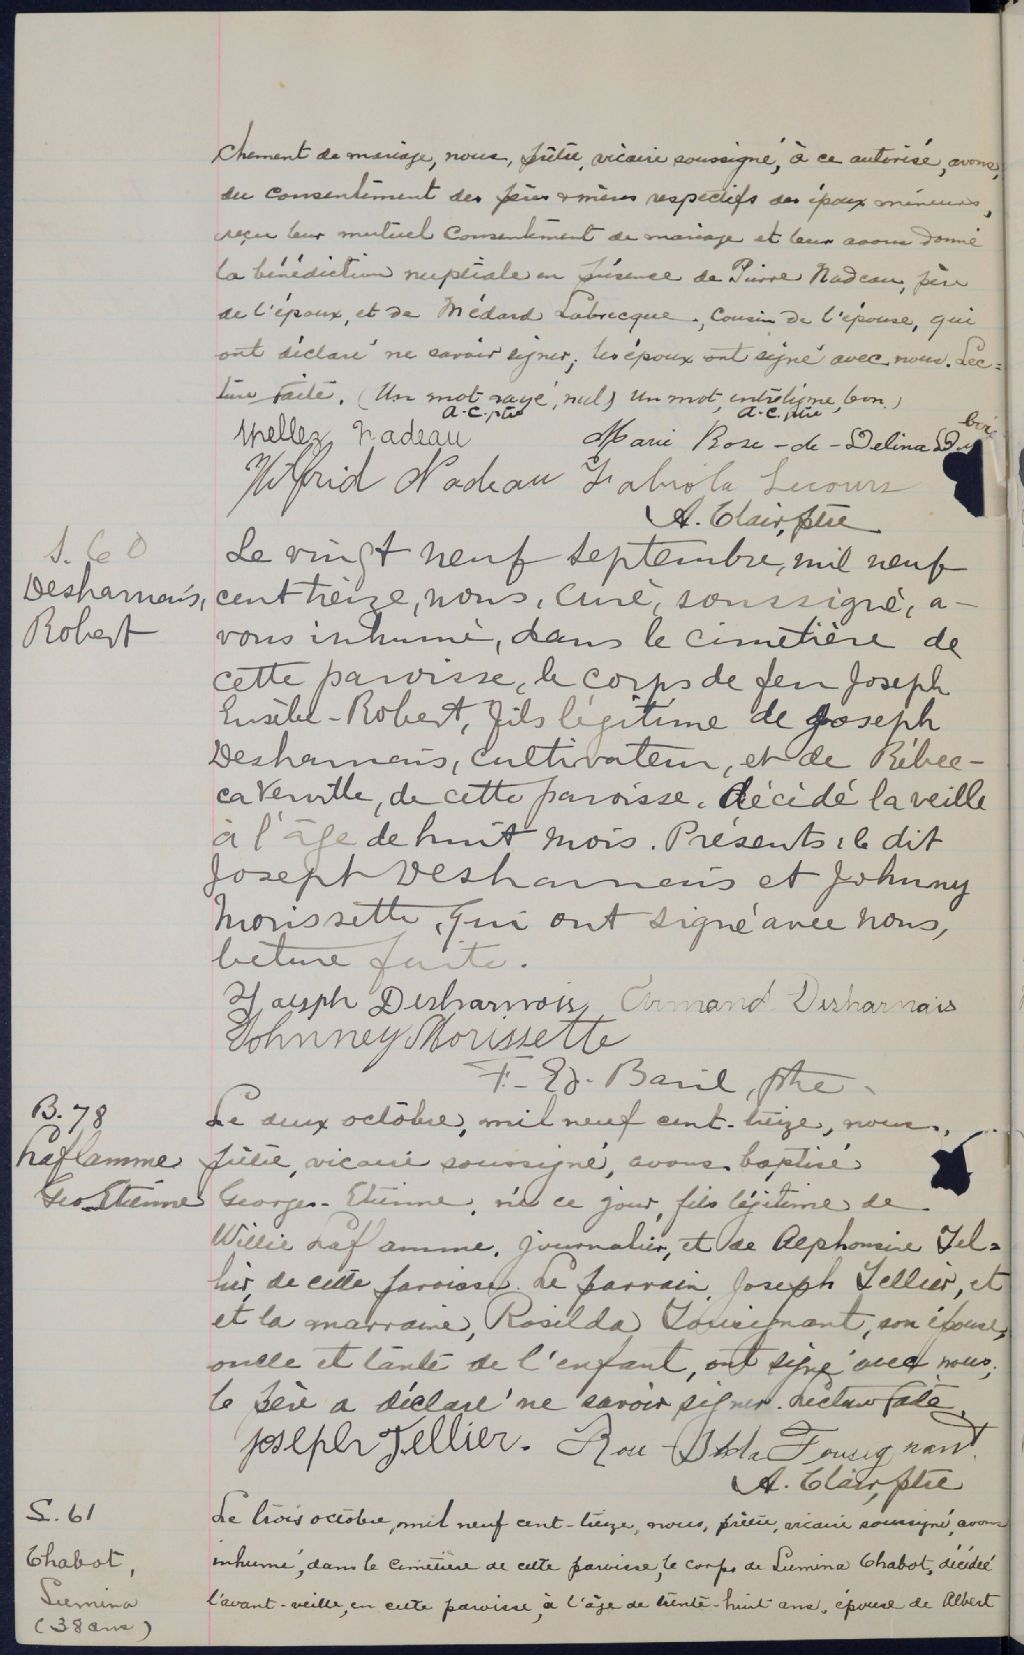 chement de mariage, nous, prêtre, vicaire soussigné, à ce autorisé, avons,
du consentement des pères & mères respectifs des époux mineurs,
reçu leur mutuel consentement de mariage et leur avons donné
la bénédiction nuptiale en présence de Pierre Nadeau, père
de l'époux, et de Médard Labrecque, cousin de l'épouse, qui
ont déclaré ne savoir signer; les époux ont signé avec nous. Lec=
ture faite. (Un mot rayé, nul) un mot, interligne, bon)
A. C. ptre A. C. ptre
Nadeau Marie Rose-de-Delina
Wilfrid Nadeau Fabiola Lecours
A. Clair, ptre
S. 60
Desharnais,
Robert
Le vingt neuf septembre, mil neuf
cent treize, nous, curé, soussigné, a-
vons inhumé, dans le cimetière de
cette paroisse, le corps de feu Joseph
Eusèbe-Robert, fils légitime de Joseph
Desharnais, cultivateur, et de Rébec-
ca Verville, de cette paroisse. décédé la veille
à l'âge de huit mois. Présents: le dit
Joseph Desharnais et Johnny
Morissette, qui ont signé avec nous,
lecture faite.
Joseph Desharnais Armand Desharnais
Johnney Morissette
F.-Ed. Baril, ptre
B. 78
Laflamme
Geo-Etienne
Le deux octobre, mil neuf cent-treize, nous,
prêtre, vicaire soussigné, avons baptisé
Georges-Etienne, né ce jour, fils légitime de
Willie Laflamme, journalier, et de Alphonsine Tel=
lier, de cette paroisse. Le parrain, Joseph Tellier, et
et la marraine, Rosilda Tousignant, son épouse,
oncle et tante de l'enfant, ont signé avec nous;
le père a déclaré ne savoir signer. Lecture faite.
Joseph Tellier. Rose-Ilda Tousignant
A. Clair, ptre
S. 61
Chabot,
Lumina
(38 ans)
Le trois octobre, mil neuf cent-treize, nous, prêtre, vicaire soussigné, avons
inhumé, dans le cimetière de cette paroisse, le corps de Lumina Chabot, décédée
l'avant-veille, en cette paroisse, à l'âge de trente-huit ans, épouse de Albert